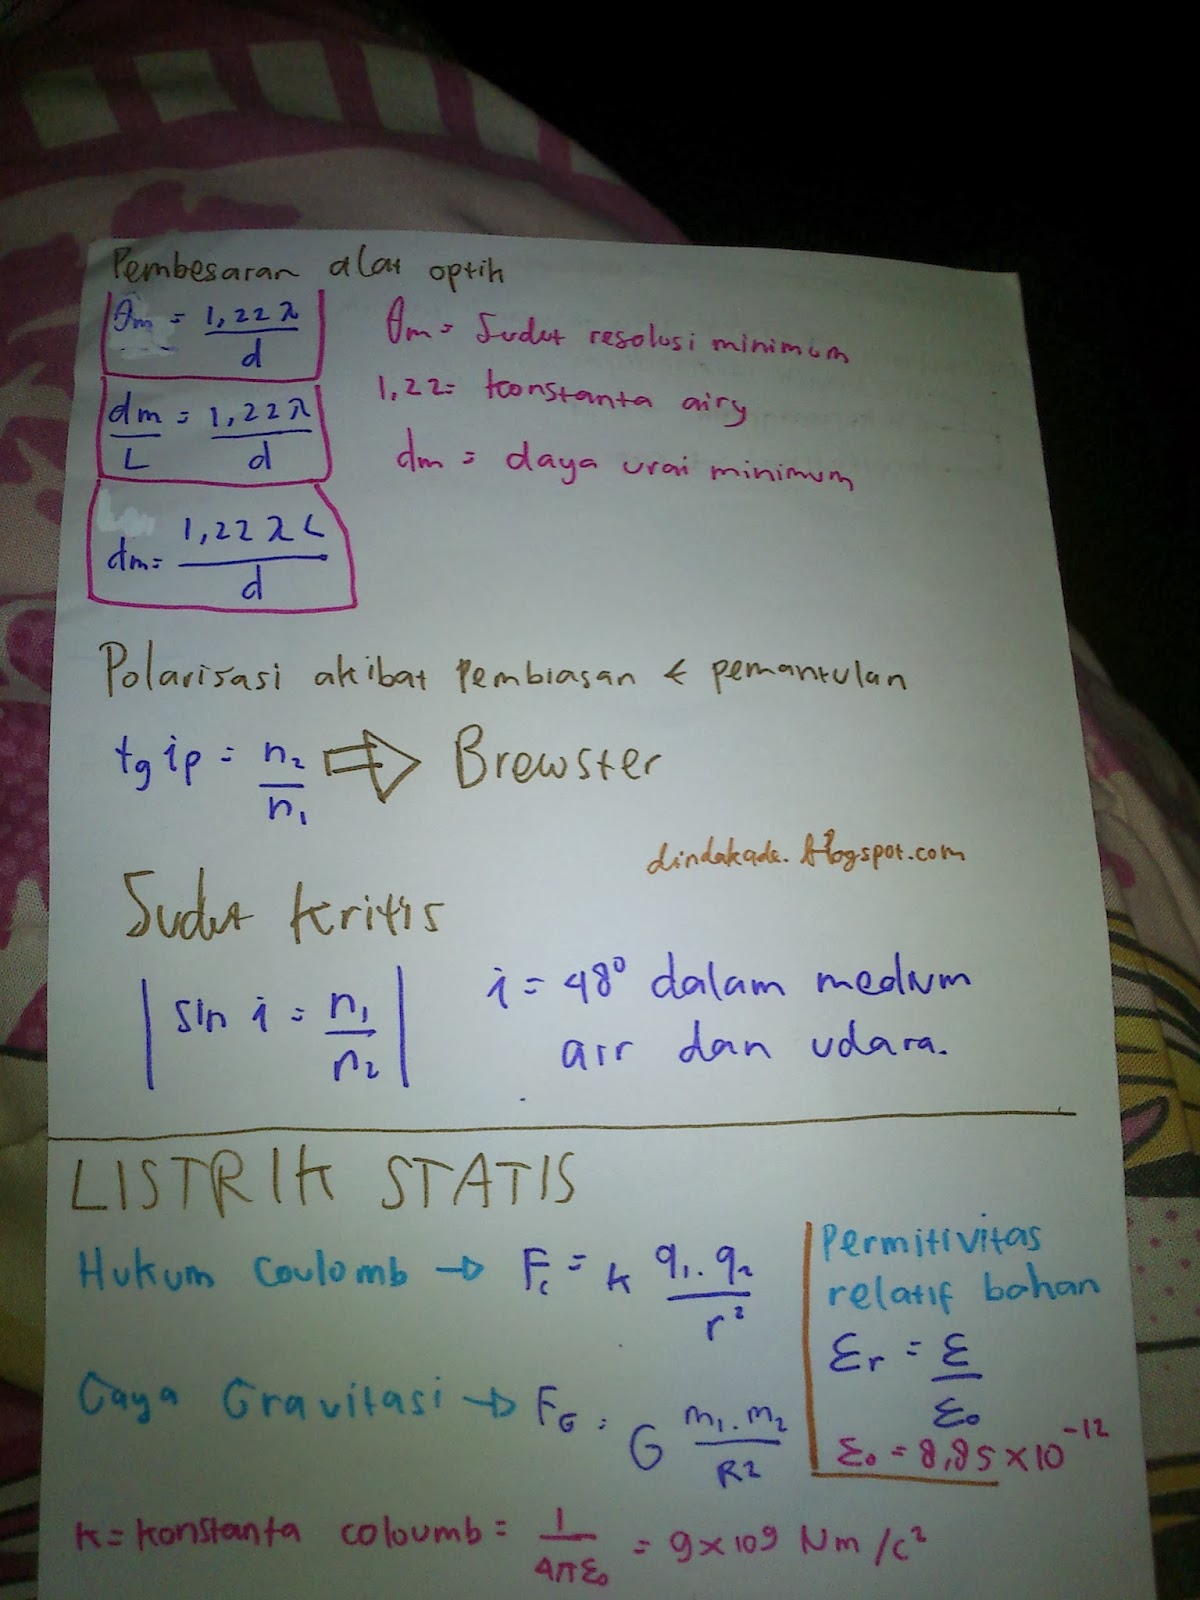 Pembesaran alat optik
θm = 1,22 λ / d
θm = Sudut resolusi minimum
1,22 = konstanta airy
dm / L = 1,22 λ / d
dm = daya urai minimum
dm = 1,22 λ L / d
Polarisasi akibat pembiasan & pemantulan
tg ip = n₂ / n₁ ⇒ Brewster
dindakade.blogspot.com
Sudut kritis
| sin i = n₁ / n₂ |
i = 48° dalam medium
air dan udara.
LISTRIK STATIS
Hukum Coulomb → Fc = k q₁.q₂ / r²
Gaya Gravitasi → FG = G m₁.m₂ / R2
Permitivitas
relatif bahan
εr = ε / ε₀
ε₀ = 8,85 × 10⁻¹²
k = konstanta coloumb = 1 / 4πε₀ = 9×109 Nm/c²